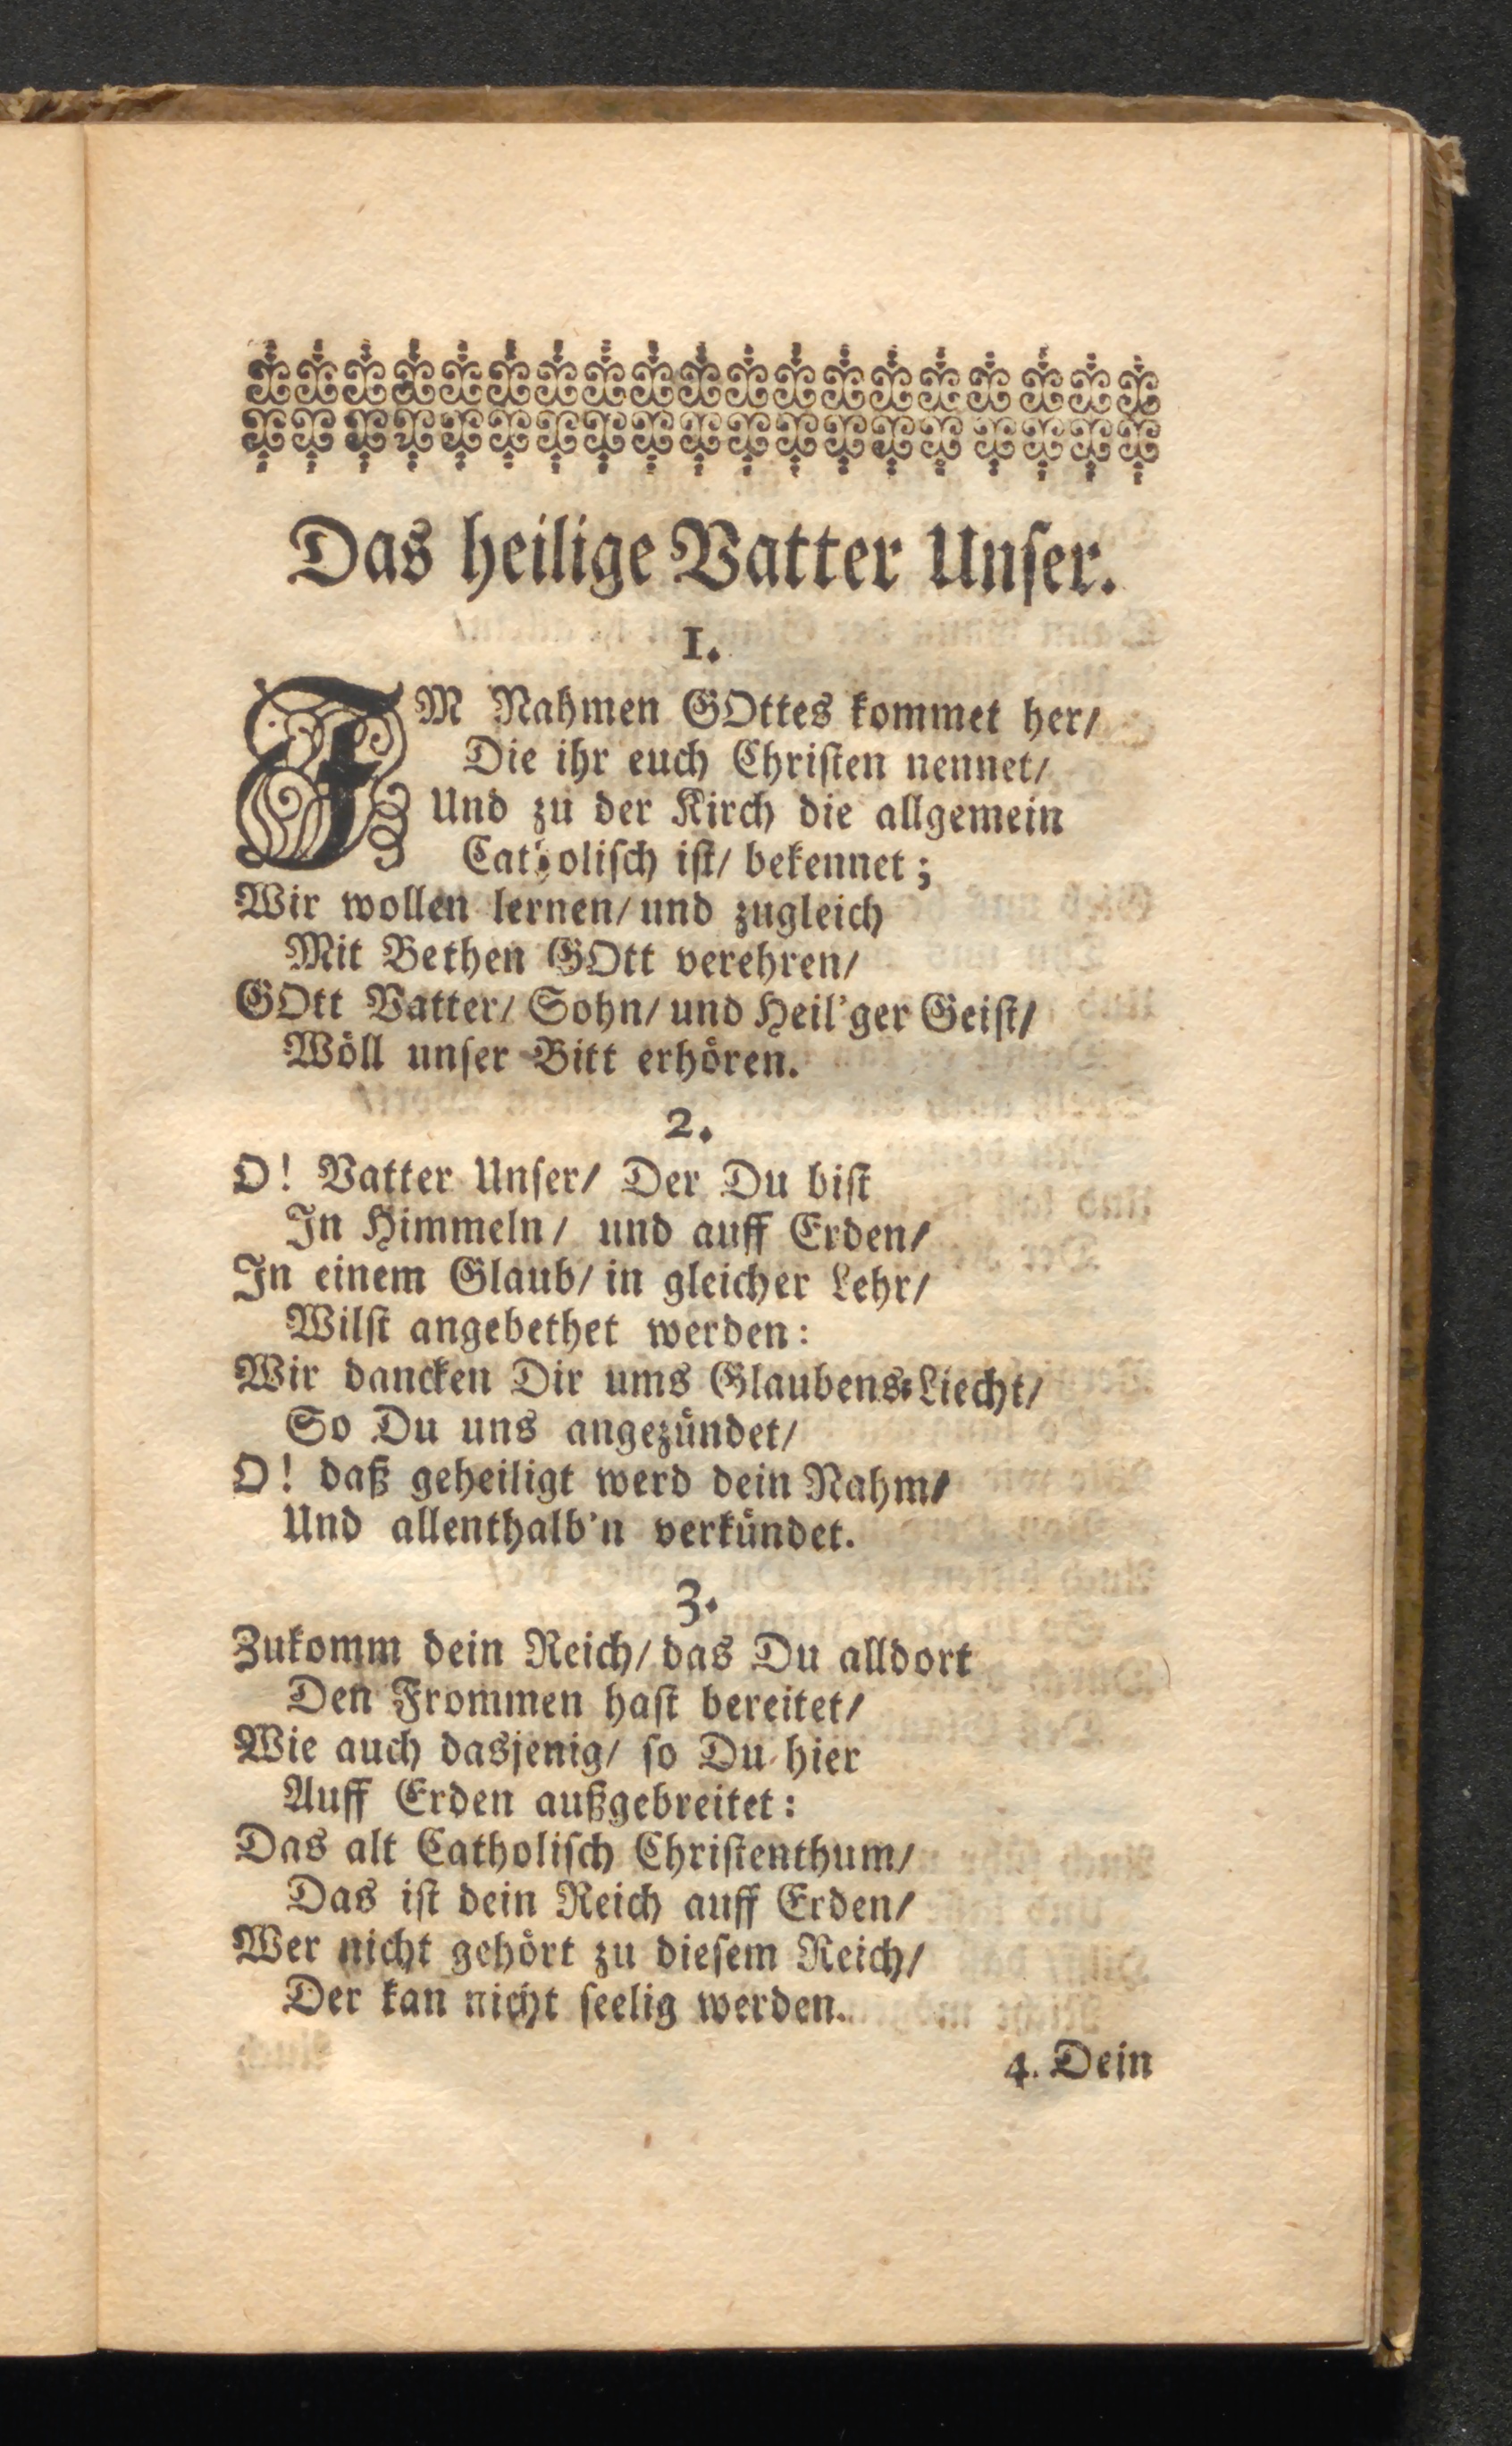 Das heilige Vatter Unser.
1.
IM Nahmen GOttes kommet her/
Die ihr euch Christen nennet/
Und zu der Kirch die allgemein
Catholisch ist/ bekennet;
Wir wollen lernen/ und zugleich
Mit Bethen GOtt verehren/
GOtt Vatter/ Sohn/ und Heil'ger Geist/
Wöll unser Bitt erhören.
2.
O! Vatter Unser/ Der Du bist
In Himmeln/ und auff Erden/
In einem Glaub/ in gleicher Lehr/
Wilst angebethet werden:
Wir dancken Dir ums Glaubens-Liecht/
So Du uns angezündet/
O! daß geheiligt werd dein Nahm/
Und allenthalb'n verkündet.
3.
Zukomm dein Reich/ das Du alldort
Den Frommen hast bereitet/
Wie auch dasjenig/ so Du hier
Auff Erden außgebreitet:
Das alt Catholisch Christenthum/
Das ist dein Reich auff Erden/
Wer nicht gehört zu diesem Reich/
Der kan nicht seelig werden.
4. Dein